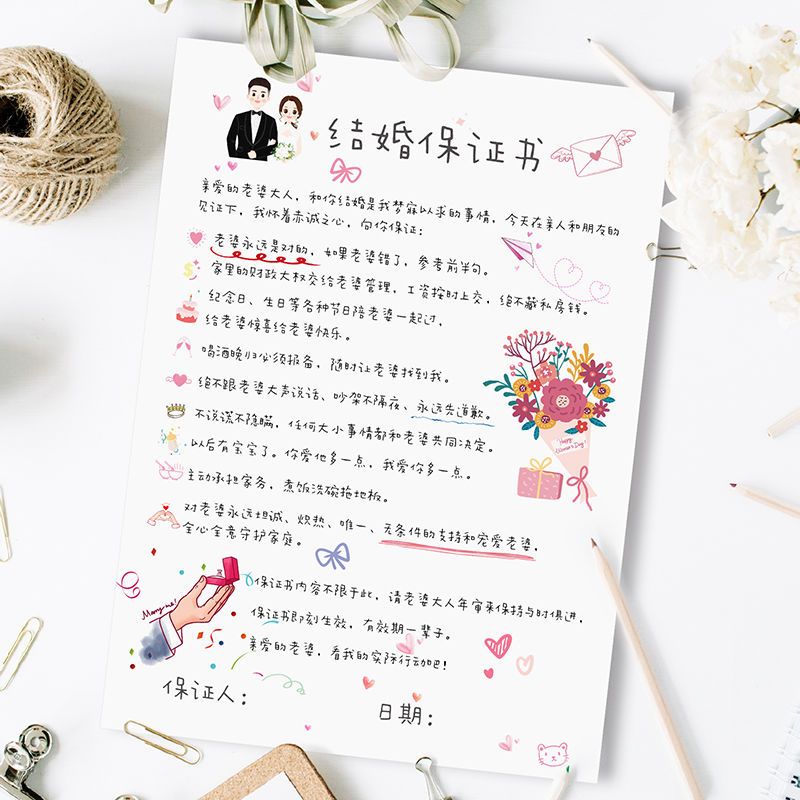 结婚保证书
亲爱的老婆大人，和你结婚是我梦寐以求的事情，今天在亲人和朋友的
见证下，我怀着赤诚之心，向你保证：
老婆永远是对的，如果老婆错了，参考前半句。
家里的财政大权交给老婆管理，工资按时上交，绝不藏私房钱。
纪念日、生日等各种节日陪老婆一起过，
给老婆惊喜给老婆快乐。
喝酒晚归必须报备，随时让老婆找到我。
绝不跟老婆大声说话、吵架不隔夜、永远先道歉。
不说谎不隐瞒，任何大小事情都和老婆共同决定。
以后有宝宝了。你爱他多一点，我爱你多一点。
主动承担家务，煮饭洗碗拖地板。
对老婆永远坦诚、炽热、唯一、无条件的支持和宠爱老婆，
全心全意守护家庭。
Happy
Women's Day!
Marry me!
保证书内容不限于此，请老婆大人年审来保持与时俱进，
保证书即刻生效，有效期一辈子。
亲爱的老婆，看我的实际行动吧！
保证人：
日期：